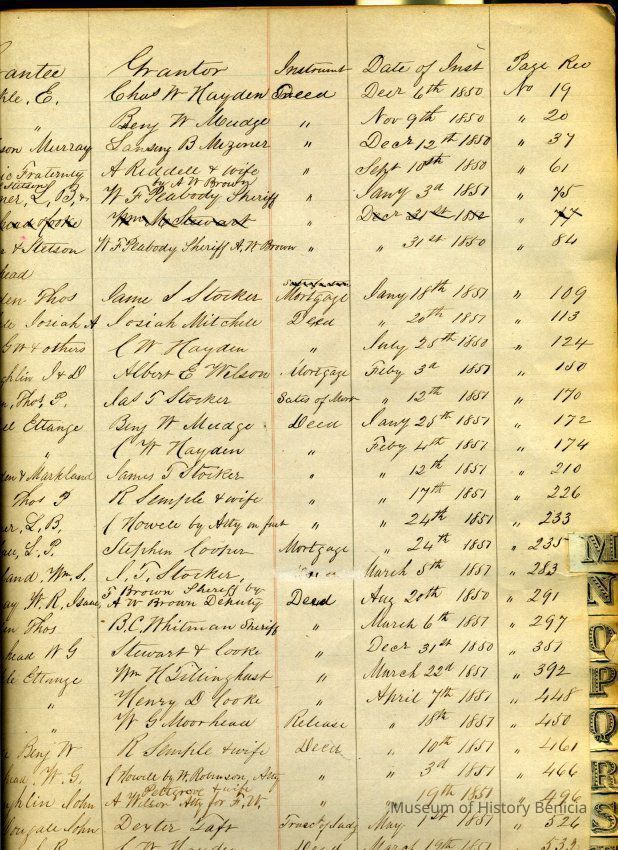 antee Grantor Instrument Date of Inst Page Rec
kle, E. Chas W Hayden Deed Decr 6th 1850 No 19
" Benj W Mudge " Nov 9th 1850 " 20
son Murray Lansing B Mizoner " Decr 12th 1850 " 37
ic Fraternity A Riddell & wife " Sept 10th 1850 " 61
Stetson by A W Brown
ner, L, B, & W. F. Peabody Sheriff " Jany 3d 1851 " 75
head & Cooke Wm M Stewart " Decr 21st 1852 " 77
& Stetson W F Peabody Sheriff A. W Brown " " 31st 1850 " 84
head
den Thos Jame S Stocker Mortgage Jany 18th 1851 " 109
le Josiah A Josiah Mitchell Deed " 20th 1851 " 113
G W & others C W Hayden " July 25th 1850 " 124
ghlin J & D Albert E Welson Mortgage Feby 3d 1851 " 150
n, Thos, P. Jas T Stocker Sates of Mort " 12th 1851 " 170
el Ettange Benj W Mudge Deed Jany 25th 1851 " 172
" C W Hayden " Feby 4th 1851 " 174
den & Markland James T Stocker " " 12th 1851 " 210
Thos P R Semple & wife " " 17th 1851 " 226
er, L, B, C Howell by Atty in fact " " 24th 1851 " 233
L. P. Stephen Cooper Mortgage " 24th 1851 " 235
land, Wm. S. J. T. Stocker, March 5th 1851 " 283
F Brown Sheriff by
ay W. R, Isaac A W Brown Deputy Deed Aug 20th 1850 " 291
n Thos B. C, Whitman Sheriff " March 6th 1851 " 297
head W G Stewart & Cooke " Decr 31st 1850 " 351
le Ettange Wm H Tillinghast " March 22d 1851 " 392
" Henry D Cooke " April 7th 1851 " 448
" W G Moorhead Release " 18th 1851 " 450
Benj W R Semple & wife Deed " 10th 1851 " 461
head, W. G. C Howell by W. Robinson, Atty " " 3d 1851 " 466
Pettgrove & wife
ghlin John A Wilson Atty for F. W. " " 19th 1851 " 496
Dougale John Dexter Taft Trasct of Judg May 1st 1851 " 526
C W Hayden Deed March 19th 1851 " 532
M
N
O
P
Q
R
S
Museum of History Benicia